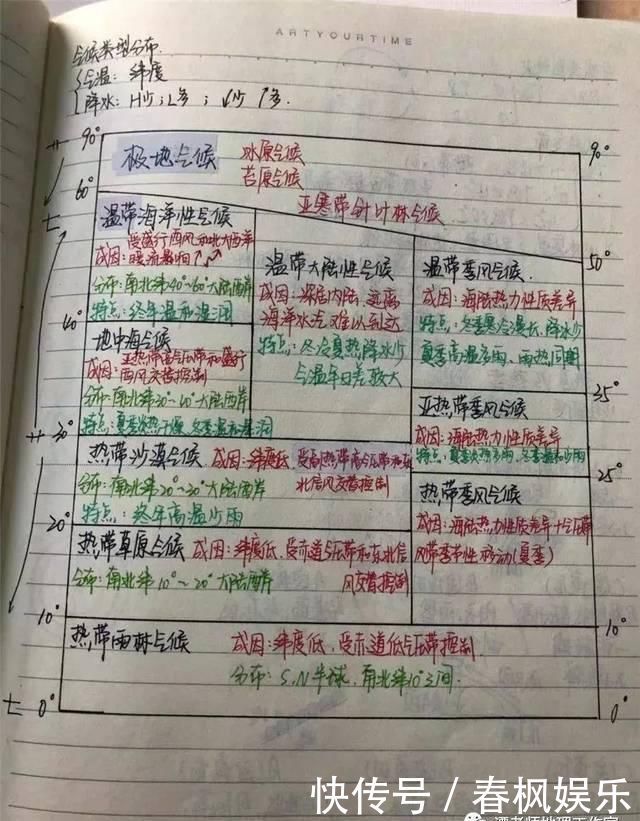 ARTYOURTIME
气候类型分布
气温:纬度
降水:H少;L多;↙少 ↗多.
90° 90°
极地气候 冰原气候
苔原气候
60°
亚寒带针叶林气候
温带海洋性气候
成因:受盛行西风和北大西洋
暖流影响
分布:南北纬40°~60°大陆西岸
特点:终年温和湿润
50°
温带大陆性气候
成因:深居内陆,远离
海洋水汽难以到达
特点:冬冷夏热降水少
气温年日差较大
温带季风气候
成因:海陆热力性质差异
特点:冬季寒冷漫长、降水少
夏季高温多雨、雨热同期
40°
地中海气候
成因:亚热带高气压带和盛行
西风交替控制
分布:南北纬30°~40°大陆西岸
特点:夏季炎热干燥,冬季温和湿润
35°
亚热带季风气候
成因:海陆热力性质差异
特点:夏季炎热多雨,冬季温和少雨
30°
热带沙漠气候 成因:纬度低,受副热带高气压带和
北信风交替控制
分布:南北纬20°~30°大陆西岸
特点:终年高温少雨
25°
热带季风气候
成因:海陆热力性质差异+气压带
风带季节性移动(夏季)
20°
热带草原气候 成因:纬度低,受赤道气压带和东北信
风交替控制
分布:南北纬10°~20°大陆西岸
10° 10°
热带雨林气候 成因:纬度低,受赤道低气压带控制
分布:S,N半球,南北纬10°之间.
0° 0°
快传号 / 春枫娱乐